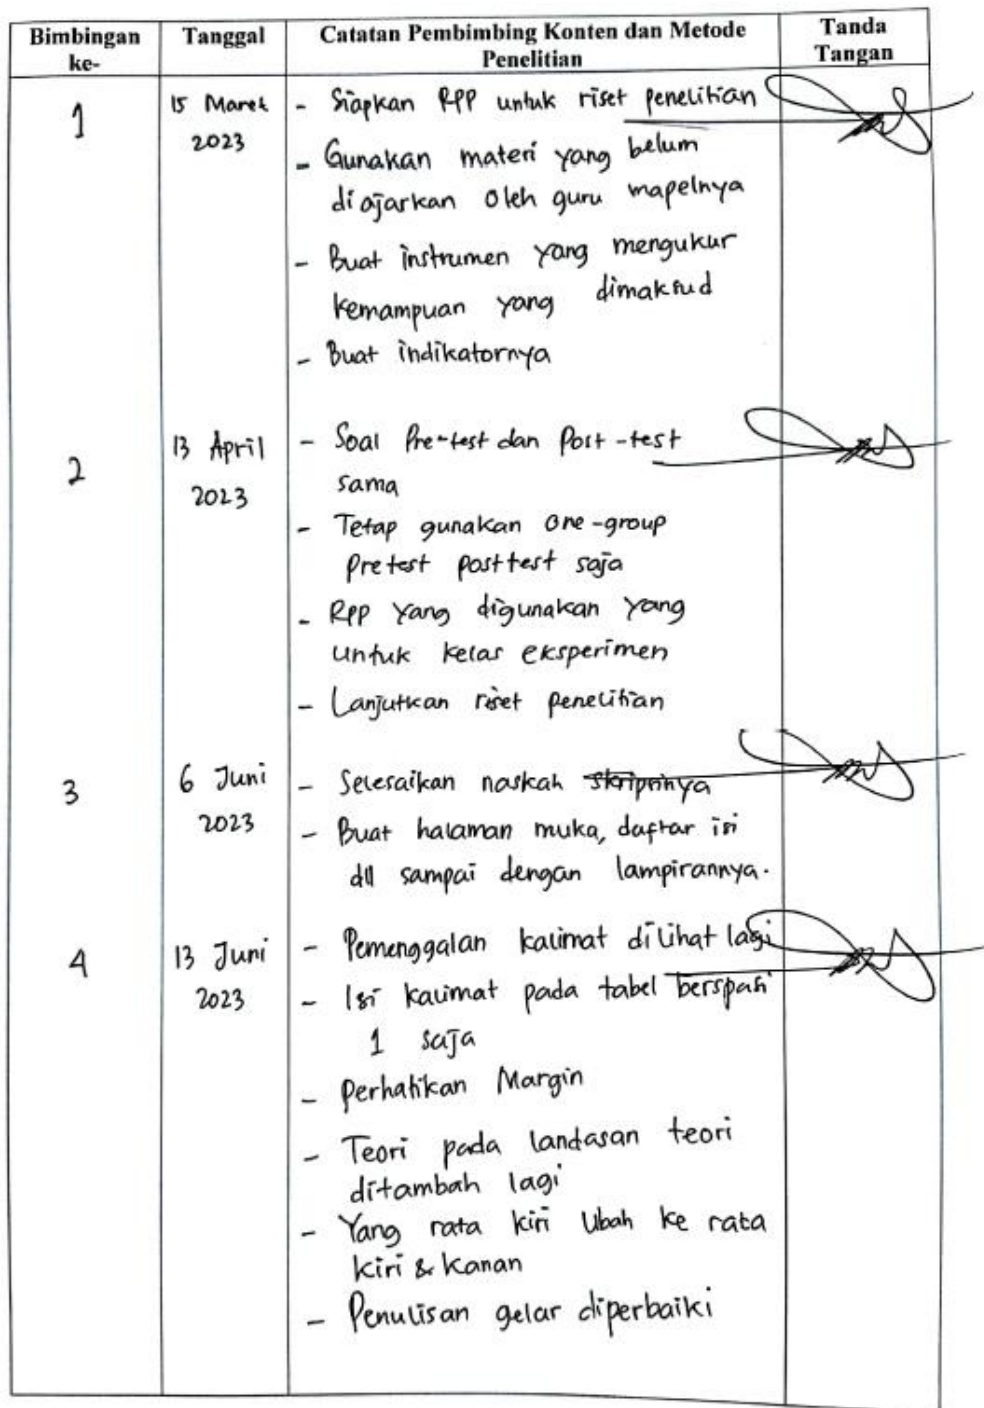 Bimbingan ke-
Tanggal
Catatan Pembimbing Konten dan Metode Penelitian
Tanda Tangan
1
15 Maret
2023
- Siapkan RPP untuk riset penelitian
- Gunakan materi yang belum
diajarkan oleh guru mapelnya
- Buat instrumen yang mengukur
kemampuan yang dimaksud
- Buat indikatornya
2
13 April
2023
- Soal Pre-test dan Post-test
sama
- Tetap gunakan one-group
Pretest posttest saja
- RPP yang digunakan yang
untuk kelas eksperimen
- Lanjutkan riset penelitian
3
6 Juni
2023
- Selesaikan naskah skripsinya
- Buat halaman muka, daftar isi
dll sampai dengan lampirannya.
4
13 Juni
2023
- Pemenggalan kalimat dilihat lagi
- Isi kalimat pada tabel berspasi
1 saja
- Perhatikan Margin
- Teori pada landasan teori
ditambah lagi
- Yang rata kiri Ubah ke rata
kiri & kanan
- Penulisan gelar diperbaiki